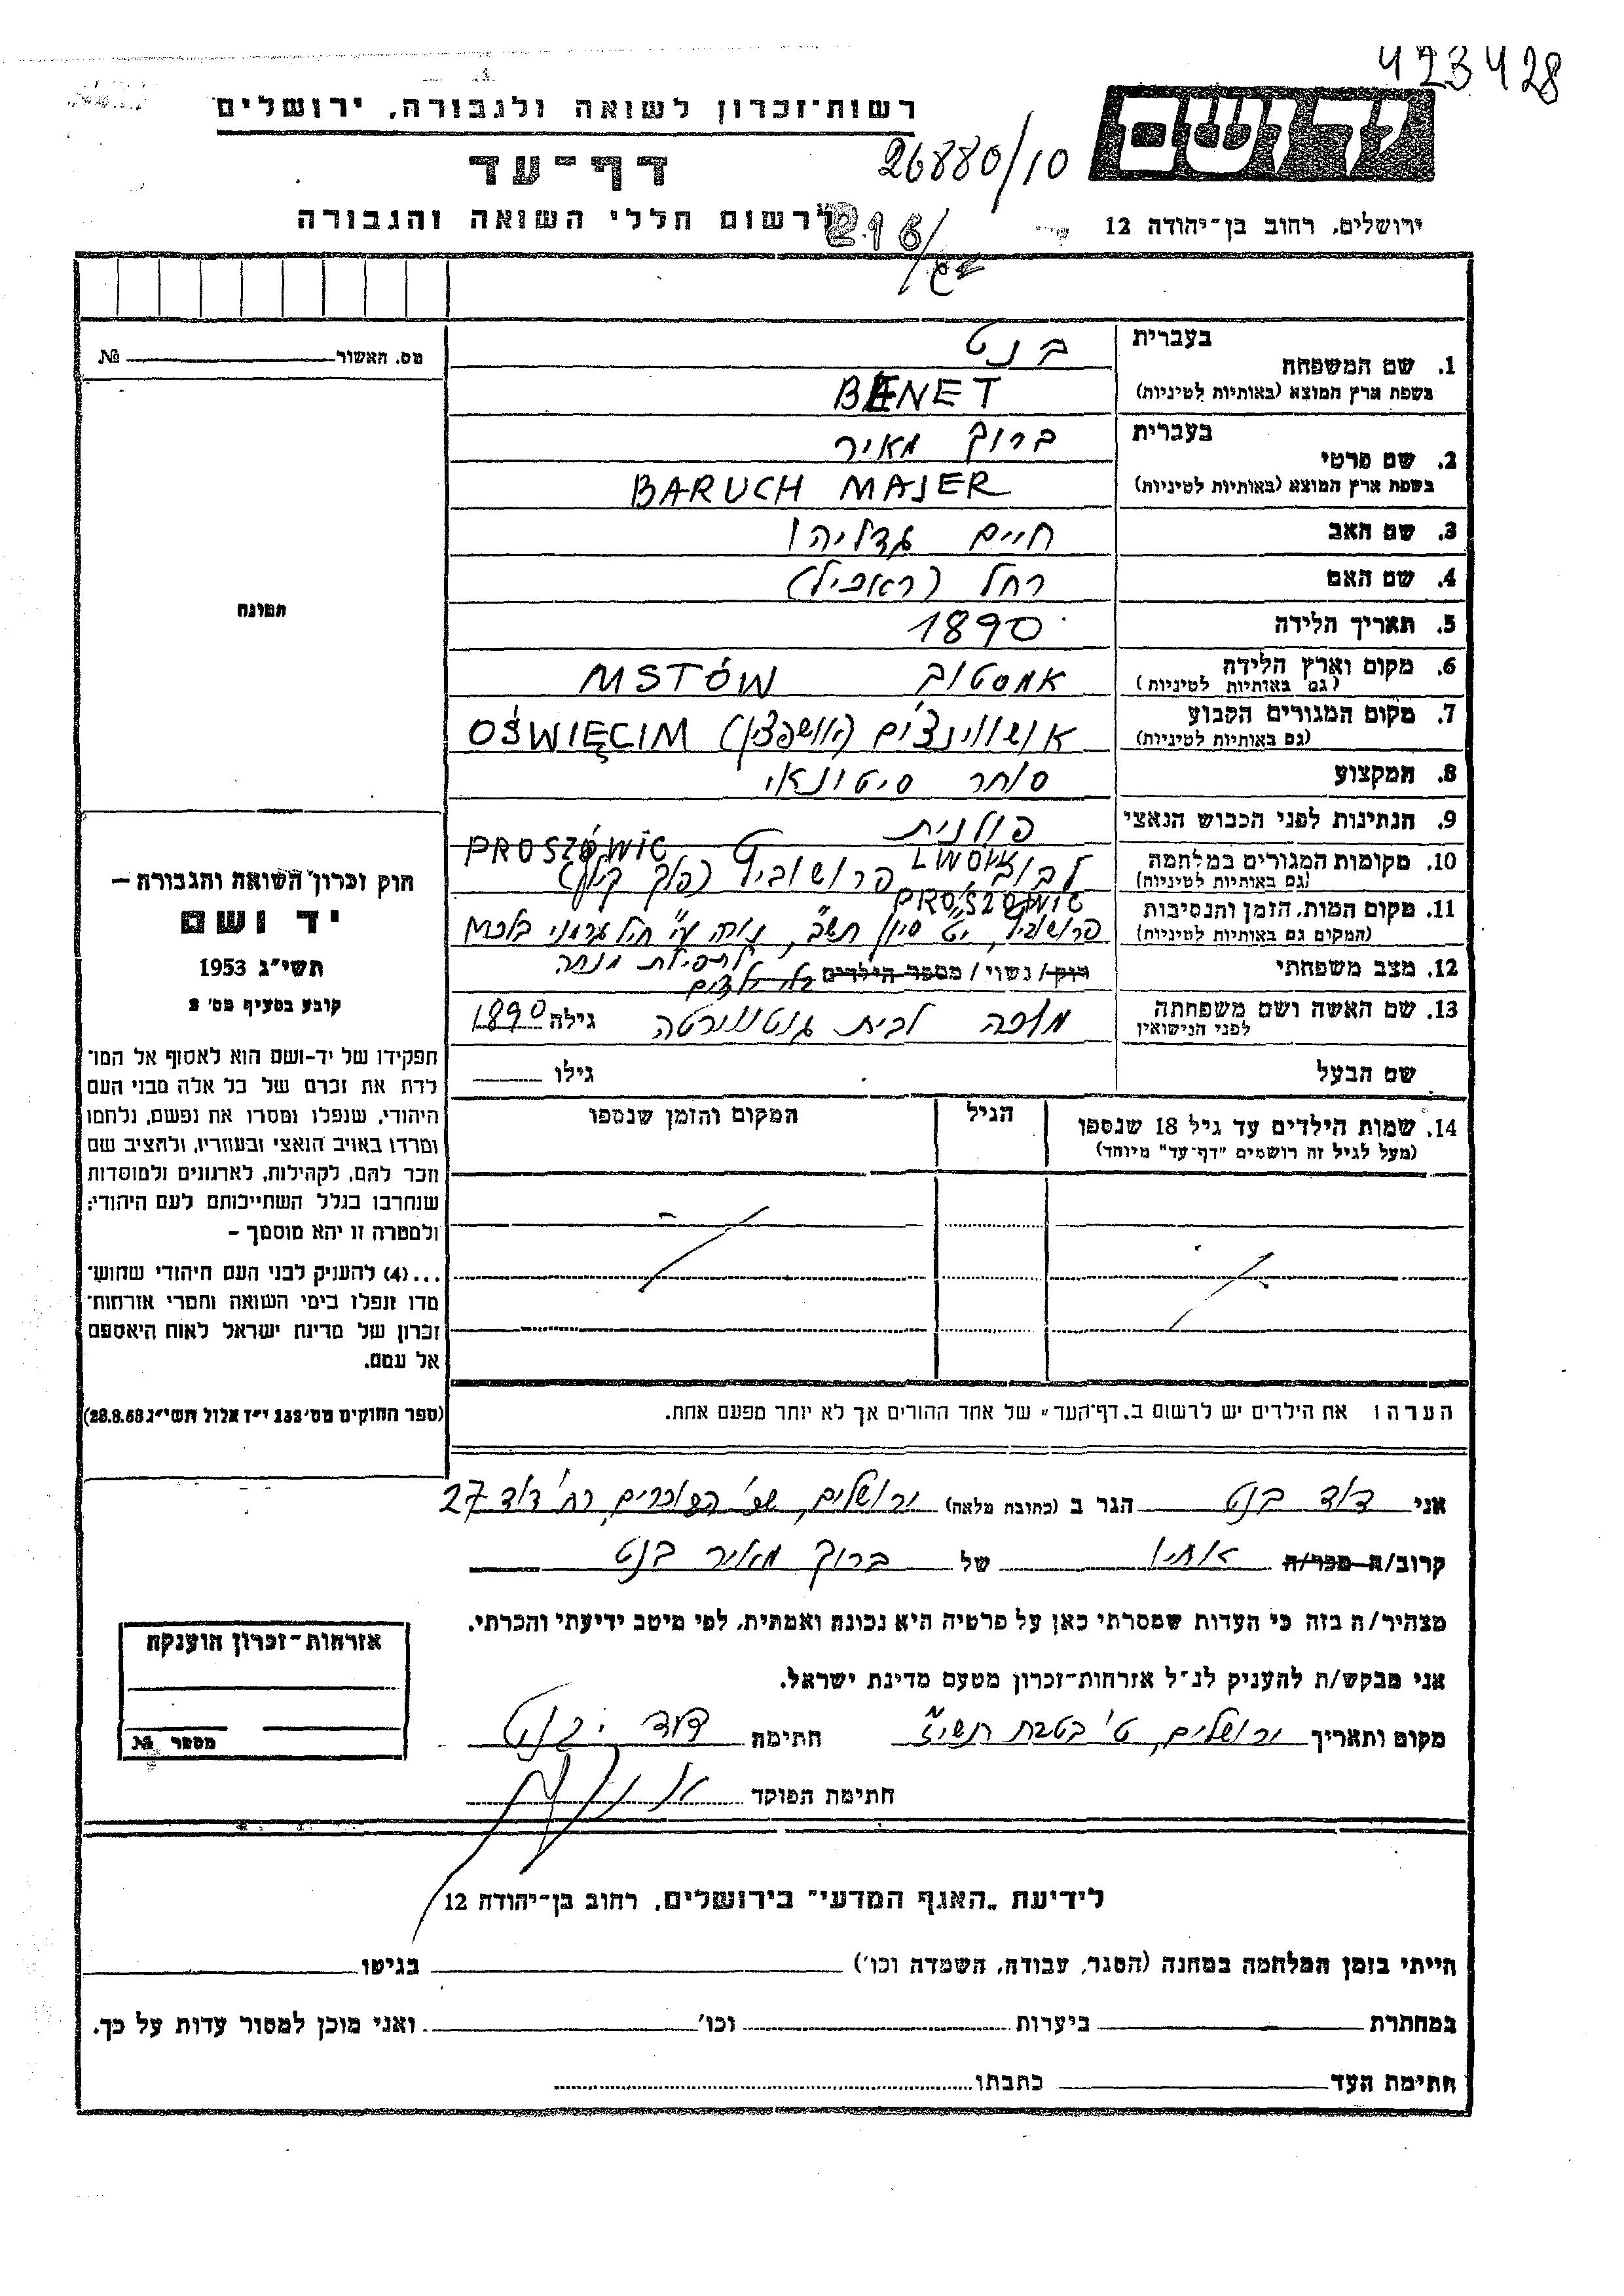 423428
רשות-זכרון לשואה ולגבורה, ירושלים
דף-עד
26880/10
לרשום חללי השואה והגבורה
216/
ירושלים, רחוב בן-יהודה 12
מס. האשור №
תמונה
בעברית
1. שם המשפחה
בשפת ארץ המוצא (באותיות לטיניות)
בנט
BENET
בעברית
2. שם פרטי
בשפת ארץ המוצא (באותיות לטיניות)
ברוך מאיר
BARUCH MAJER
3. שם האב חיים גדליהו
4. שם האם רחל (ראכיל)
5. תאריך הלידה 1890
6. מקום וארץ הלידה אמסטוב MSTÓW
(גם באותיות לטיניות)
7. מקום המגורים הקבוע אושווינצ'ים (אושפצין) OŚWIĘCIM
(גם באותיות לטיניות)
8. המקצוע סוחר סיטונאי
9. הנתינות לפני הכבוש הנאצי פולנית
10. מקומות המגורים במלחמה לבוב LWOW פרושוביץ PROSZÓWIC
(גם באותיות לטיניות)
PROSZOWIC
11. מקום המות, הזמן והנסיבות פרושוביץ, י"ט סיון תש"ב, נורה ע"י חיל גרמני בלכתו
(המקום גם באותיות לטיניות)
לתפילת מנחה
12. מצב משפחתי רוק / נשוי / מספר הילדים בלי ילדים
13. שם האשה ושם משפחתה לבית גוטוירטה גילה 1890
לפני הנישואין
שם הבעל גילו
14. שמות הילדים עד גיל 18 שנספו הגיל המקום והזמן שנספו
(מעל לגיל זה רושמים "דף-עד" מיוחד)
הערה: את הילדים יש לרשום ב„דף-העד" של אחד ההורים אך לא יותר מפעם אחת.
חוק זכרון השואה והגבורה –
יד ושם
תשי"ג 1953
קובע בסעיף מס' 2
תפקידו של יד-ושם הוא לאסוף אל המו־
לדת את זכרם של כל אלה מבני העם
היהודי, שנפלו ומסרו את נפשם, נלחמו
ומרדו באויב הנאצי ובעוזריו, ולהציב שם
וזכר להם, לקהילות, לארגונים ולמוסדות
שנחרבו בגלל השתייכותם לעם היהודי;
ולמטרה זו יהא מוסמך –
...(4) להעניק לבני העם היהודי שהוש־
מדו ונפלו בימי השואה והמרי אזרחות־
זכרון של מדינת ישראל לאות היאספם
אל עמם.
(ספר החוקים מס' 132 י"ז אלול תשי"ג 28.8.53)
אני דוד בנט הגר ב (כתובת מלאה) ירושלים, שכ' הבוכרים, רח' דוד 27
קרוב/ה מכר/ה אחיו של ברוך מאיר בנט
מצהיר/ה בזה כי העדות שמסרתי כאן על פרטיה היא נכונה ואמתית, לפי מיטב ידיעתי והכרתי.
אני מבקש/ת להעניק לנ"ל אזרחות-זכרון מטעם מדינת ישראל.
מקום ותאריך ירושלים, ט' בטבת תשי"ז חתימה דוד בנט
חתימת הפוקד
אזרחות-זכרון הוענקה
מספר №
לידיעת „האגף המדעי" בירושלים, רחוב בן-יהודה 12
הייתי בזמן המלחמה במחנה (הסגר, עבודה, השמדה וכו') בגיטו
במחתרת ביערות וכו' ואני מוכן למסור עדות על כך.
חתימת העד כתבתו